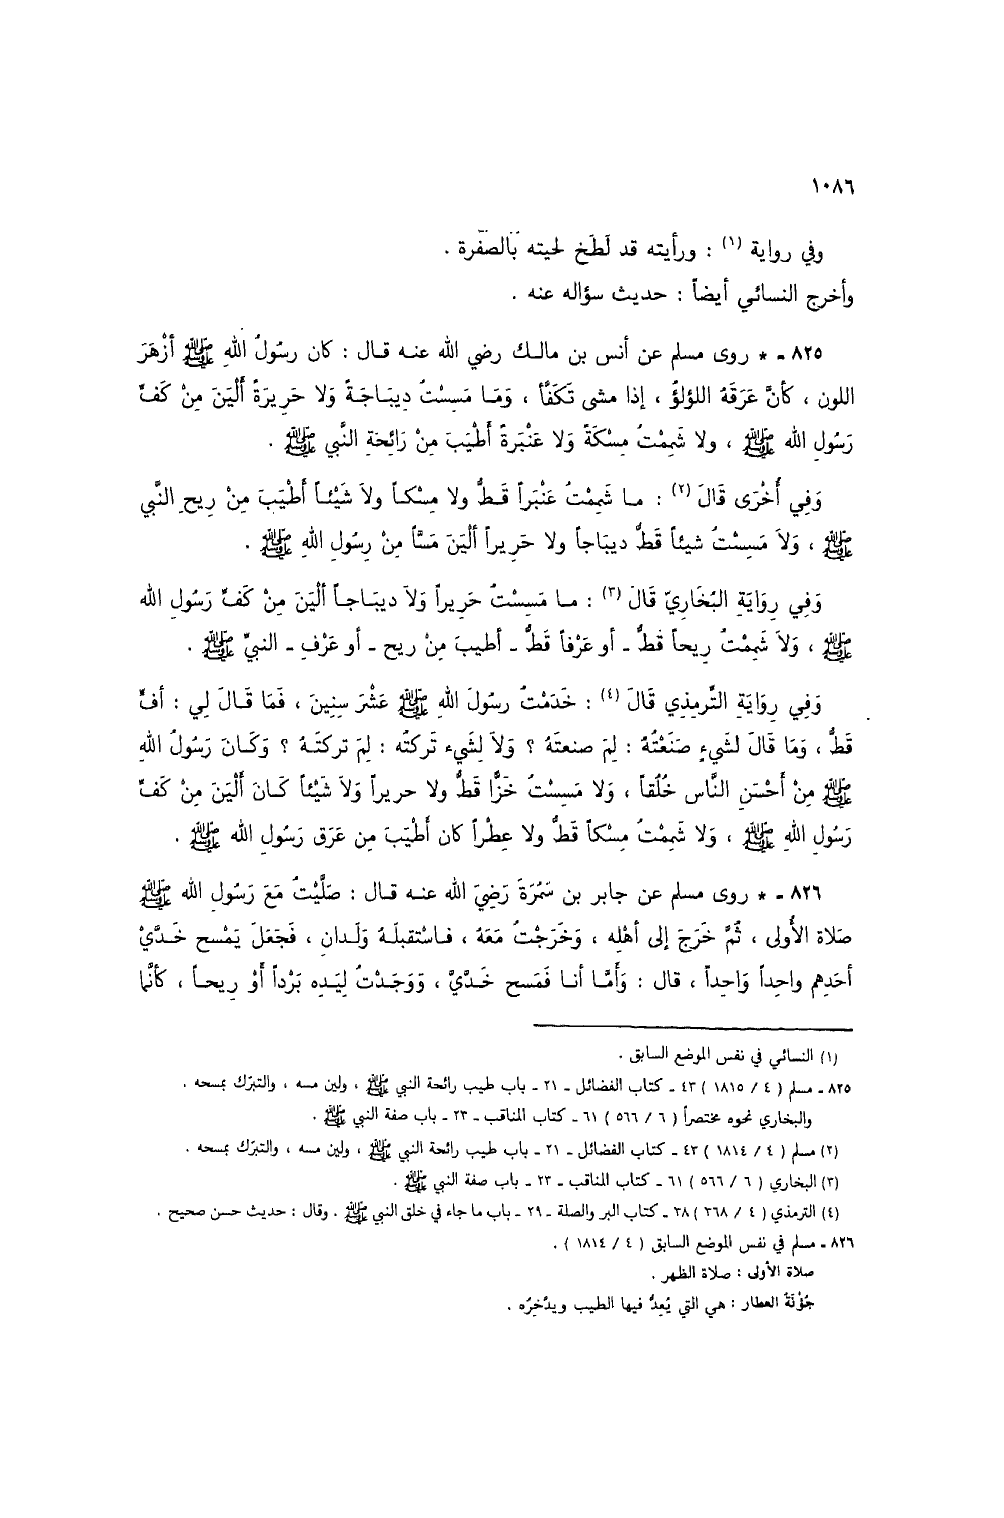 ١٠٨٦
وفي رواية (١) : ورأيته قد لَطَخ لحيته بالصفرة .
وأخرج النسائي أيضاً : حديث سؤاله عنه .
٨٢٥ ـ * روى مسلم عن أنس بن مالك رضي الله عنه قال : كان رسولُ اللهِ ﷺ أزْهَرَ
اللون ، كأنَّ عَرَقَهُ اللؤلؤُ ، إذا مشى تَكَفَّأ ، وَمَا مَسِسْتُ دِيبَاجَةً وَلا حَرِيرَةً أَلْيَنَ مِنْ كَفِّ
رَسُولِ الله ﷺ ، ولا شَمِمْتُ مِسْكَةً وَلا عَنْبَرَةً أَطْيَبَ مِنْ رَائِحَةِ النَّبي ﷺ .
وَفِي أُخْرَى قَالَ (٢) : ما شَمِمْتُ عَنْبَراً قَطُّ ولا مِسْكاً ولاَ شَيْئاً أَطْيَبَ مِنْ رِيحِ النَّبي
ﷺ ، وَلاَ مَسِسْتُ شيئاً قَطُّ ديبَاجاً ولا حَرِيراً ألْيَنَ مَسَّاً مِنْ رسُولِ اللهِ ﷺ .
وَفِي رِوَايَةِ البُخَارِيّ قَالَ (٣) : ما مَسِسْتُ حَرِيراً وَلاَ ديبَاجاً ألْيَنَ مِنْ كَفِّ رَسُولِ الله
ﷺ ، وَلاَ شَمِمْتُ رِيحاً قَطُّ ـ أو عَرْفاً قَطُّ ـ أطيبَ مِنْ ريح ـ أو عَرْفِ ـ النبيِّ ﷺ .
وَفِي رِوَايَةِ التِّرمِذي قَالَ (٤) : خَدَمْتُ رسُولَ اللهِ ﷺ عَشْرَ سِنِينَ ، فَمَا قَالَ لِي : أفٍّ
قَطُّ ، وَمَا قَالَ لشَيءٍ صَنَعْتُهُ : لِمَ صنعتَهُ ؟ وَلاَ لِشَيء تَركتُه : لِمَ تركتَهُ ؟ وَكَانَ رَسُولُ اللهِ
ﷺ مِنْ أَحْسَنِ النَّاس خُلُقاً ، وَلا مَسِسْتُ خَزًّا قَطُّ ولا حريراً وَلاَ شَيْئاً كَانَ أَلْيَنَ مِنْ كَفِّ
رَسُولِ اللهِ ﷺ ، وَلا شَمِمْتُ مِسْكاً قَطُّ ولا عِطْراً كان أَطْيَبَ مِن عَرَق رَسُولِ الله ﷺ .
٨٢٦ ـ * روى مسلم عن جابر بن سَمُرَةَ رَضِيَ الله عنه قال : صَلَّيْتُ مَعَ رَسُولِ الله ﷺ
صَلاة الأُولى ، ثُمَّ خَرَجَ إلى أهْلِه ، وَخَرَجْتُ مَعَهُ ، فاسْتقبلَهُ وَلَدانِ ، فَجَعَلَ يَمْسح خَدَّيْ
أحَدِهِم واحِداً وَاحِداً ، قال : وَأمَّا أنا فَمَسح خَدَّيَّ ، وَوَجَدْتُ لِيَدِه بَرْداً أَوْ رِيحاً ، كأنَّما
(١) النسائي في نفس الموضع السابق .
٨٢٥ ـ مسلم ( ٤ / ١٨١٥ ) ٤٣ ـ كتاب الفضائل ـ ٢١ ـ باب طيب رائحة النبي ﷺ ، ولين مسه ، والتبرّك بمسحه .
والبخاري نحوه مختصراً ( ٦ / ٥٦٦ ) ٦١ ـ كتاب المناقب ـ ٢٣ ـ باب صفة النبي ﷺ .
(٢) مسلم ( ٤ / ١٨١٤ ) ٤٣ ـ كتاب الفضائل ـ ٢١ ـ باب طيب رائحة النبي ﷺ ، ولين مسه ، والتبرّك بمسحه .
(٣) البخاري ( ٦ / ٥٦٦ ) ٦١ ـ كتاب المناقب ـ ٢٣ ـ باب صفة النبي ﷺ .
(٤) الترمذي ( ٤ / ٣٦٨ ) ٢٨ ـ كتاب البر والصلة ـ ٢٩ ـ باب ما جاء في خلق النبي ﷺ . وقال : حديث حسن صحيح .
٨٢٦ ـ مسلم في نفس الموضع السابق ( ٤ / ١٨١٤ ) .
صلاة الأولى : صلاة الظهر .
جُؤْنَةُ العطار : هي التي يُعِدُّ فيها الطيب ويدّخِرُه .